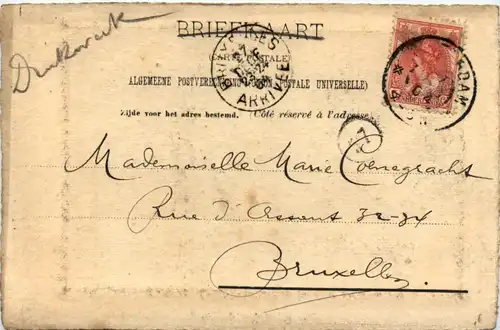 Drukwerk
BRIEFKAART
(CARTE POSTALE)
ALGEMEENE POSTVEREENIGING (UNION POSTALE UNIVERSELLE)
Zijde voor het adres bestemd. (Côté réservé à l'adresse)
BRUXELLES
ARRIVEE
DAM
Mademoiselle Marie Coenegracht
Rue d'Assent 32-34
Bruxelles